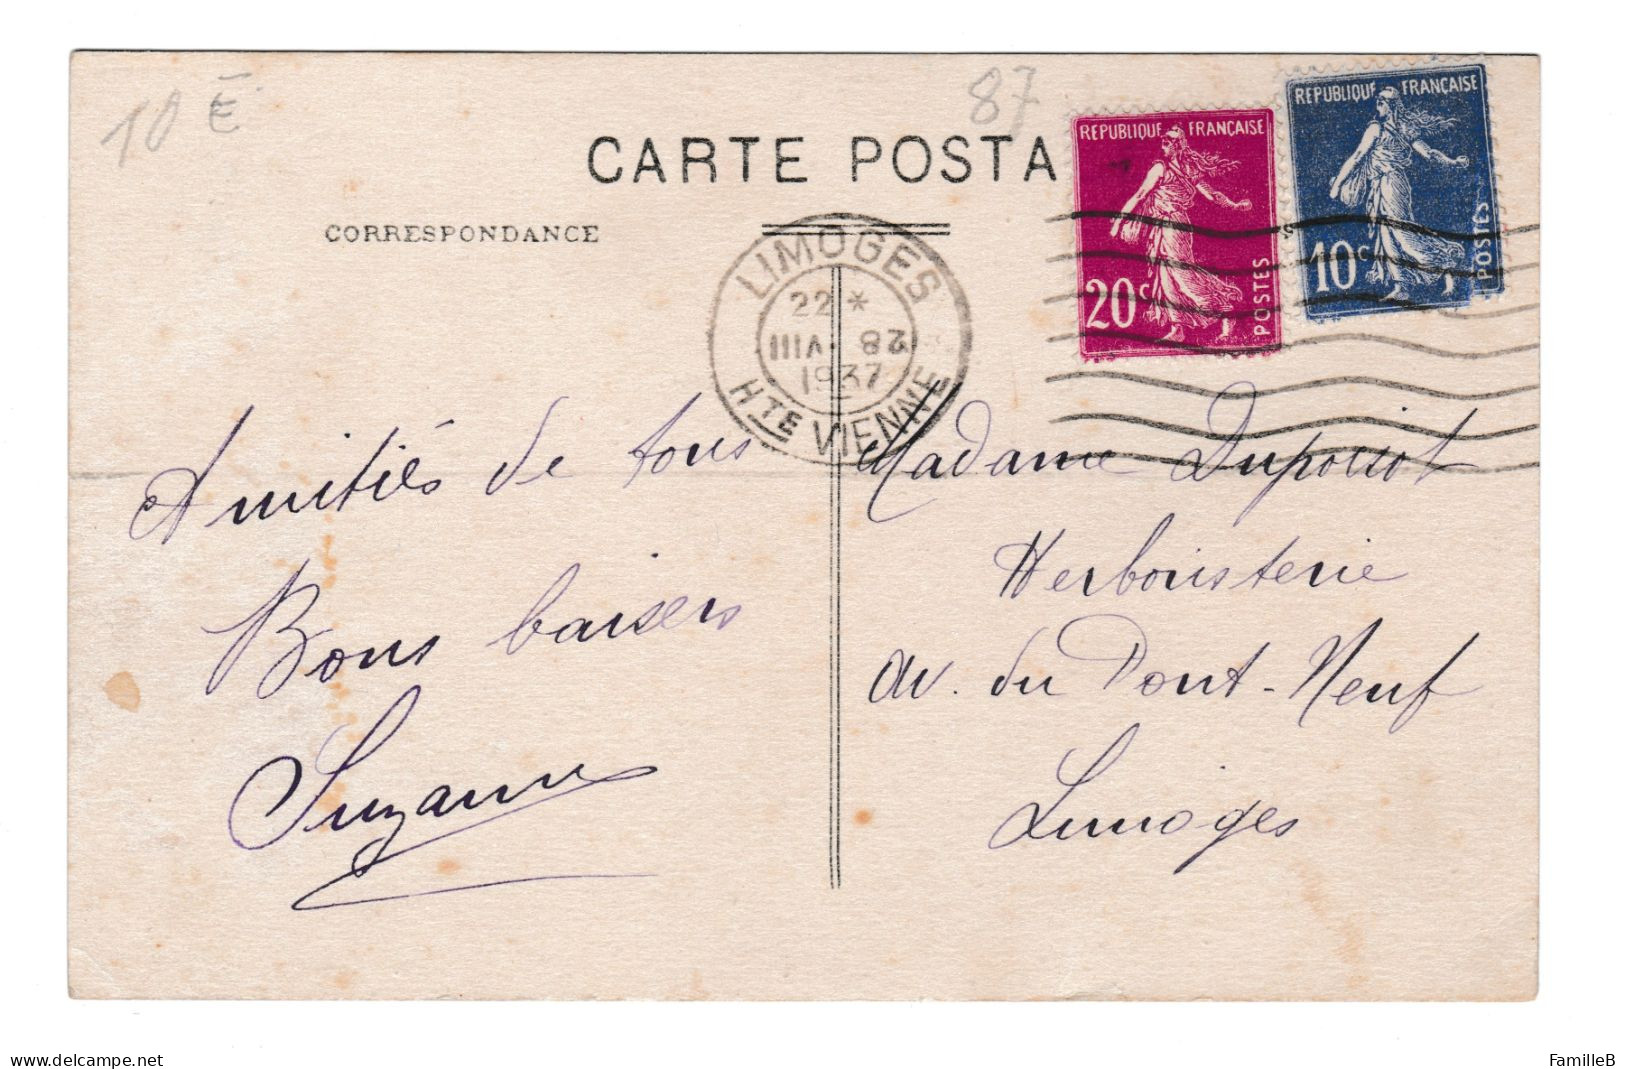 10 E
87
CARTE POSTA
CORRESPONDANCE
REPUBLIQUE FRANÇAISE
20c
POSTES
REPUBLIQUE FRANÇAISE
10c
POSTES
LIMOGES
22 *
28 VIII
1937
HTE VIENNE
Amitiés de tous
Bons baisers
Suzanne
Madame
Herboristerie
Av. du Pont-Neuf
Limoges
www.delcampe.net
FamilleB